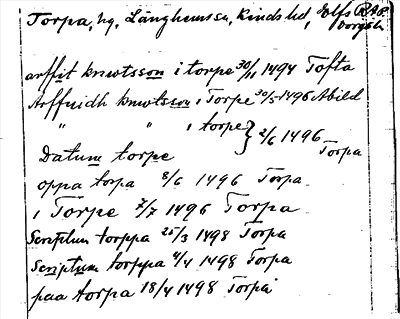 Torpa, hg, Länghems sn, Kinds hd, Elfs RAp.
borgsl.
arffit knwtsson i torpe 30/11 1494 Tofta
Arffuidh knwtsson i Torpe 30/5 1496 Abild
" " i torpe } 2/6 1496
Datum torpe Torpa
oppa torpa 8/6 1496 Torpa
i Torpe 7/7 1496 Torpa
Scriptum torppa 25/3 1498 Torpa
Scriptum torppa 4/4 1498 Torpa
paa torpa 18/4 1498 Torpa